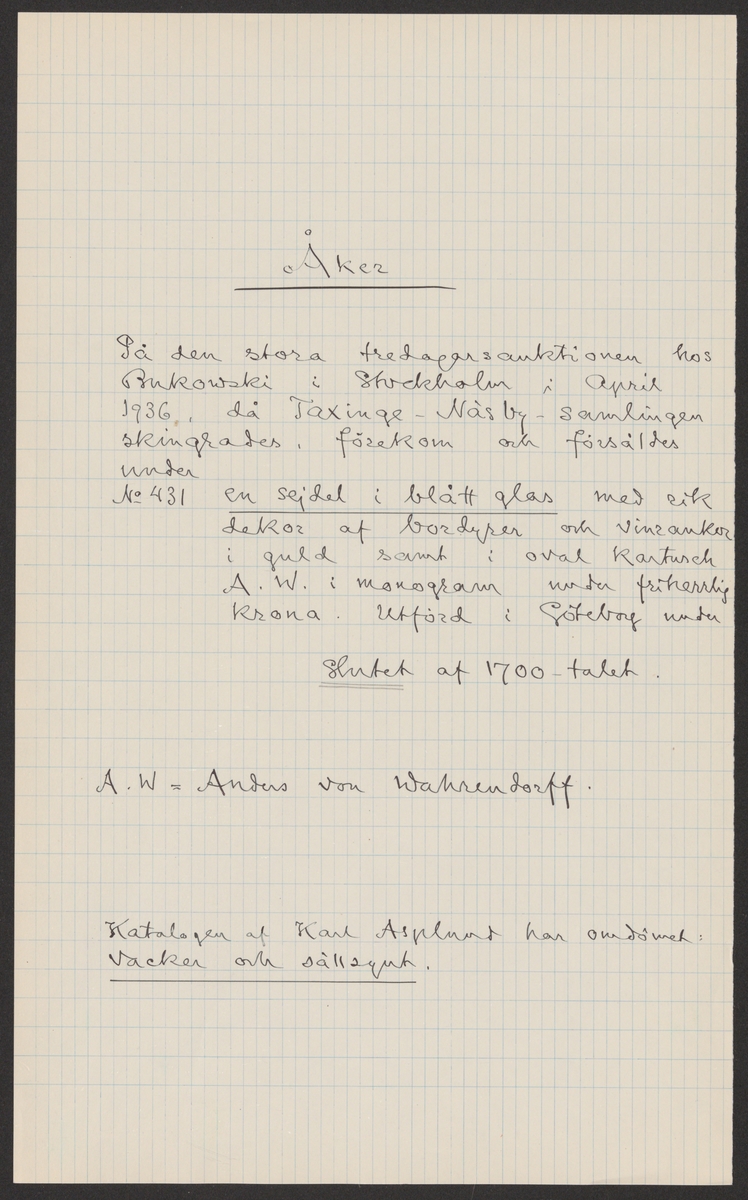 Åker
På den stora tredagarsauktionen hos
Bukowski i Stockholm i April
1936, då Taxinge-Näsby-samlingen
skingrades, förekom och försåldes
under
No 431 en sejdel i blått glas med rik
dekor af bordyrer och vinrankor
i guld samt i oval kartusch
A. W. i monogram under friherrlig
krona. Utförd i Göteborg under
slutet af 1700-talet.
A. W = Anders von Wahrendorff.
Katalogen af Karl Asplund har omdömet:
Vacker och sällsynt.